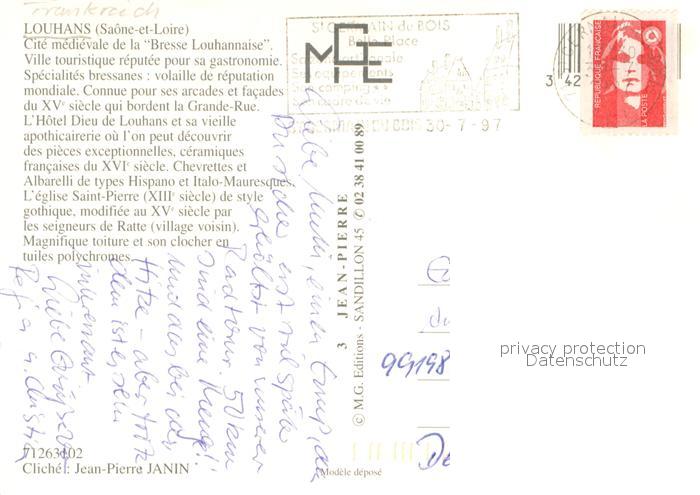 Frankreich
LOUHANS (Saône-et-Loire)
Cité médiévale de la “Bresse Louhannaise”.
Ville touristique réputée pour sa gastronomie.
Spécialités bressanes : volaille de réputation
mondiale. Connue pour ses arcades et façades
du XVe siècle qui bordent la Grande-Rue.
L’Hôtel Dieu de Louhans et sa vieille
apothicairerie où l’on peut découvrir
des pièces exceptionnelles, céramiques
françaises du XVIe siècle. Chevrettes et
Albarelli de types Hispano et Italo-Mauresques.
L’église Saint-Pierre (XIIIe siècle) de style
gothique, modifiée au XVe siècle par
les seigneurs de Ratte (village voisin).
Magnifique toiture et son clocher en
tuiles polychromes.
71263102
Cliché : Jean-Pierre JANIN
ST GERMAIN du BOIS
Belle Place
30-7-97
3 42
REPUBLIQUE FRANÇAISE
LA POSTE
3 JEAN-PIERRE
© M.G. Editions - SANDILLON 45 ✆ 02 38 41 00 89
Modèle déposé
einen
erst
von unserer
Radtour. 50 km
sind eine Menge!
und das bei der
Hitze - aber trotz
dem ist es sehr
interessant.
Liebe Grüsse
99198
privacy protection
Datenschutz